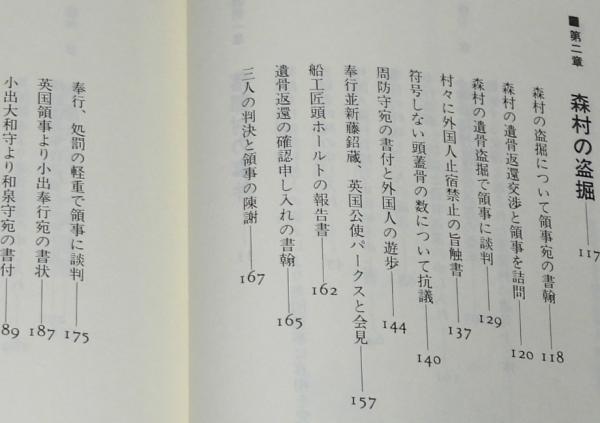 ■ 第二章 森村の盗掘 117
森村の盗掘について領事宛の書翰 118
森村の遺骨返還交渉と領事を詰問 120
森村の遺骨盗掘で領事に談判 129
村々に外国人止宿禁止の旨触書 137
符号しない頭蓋骨の数について抗議 140
周防守宛の書付と外国人の遊歩 144
奉行並新藤鉊蔵、英国公使パークスと会見 157
船工匠頭ホールトの報告書 162
遺骨返還の確認申し入れの書翰 165
三人の判決と領事の陳謝 167
奉行、処罰の軽重で領事に談判 175
英国領事より小出奉行宛の書状 187
小出大和守より和泉守宛の書付 89